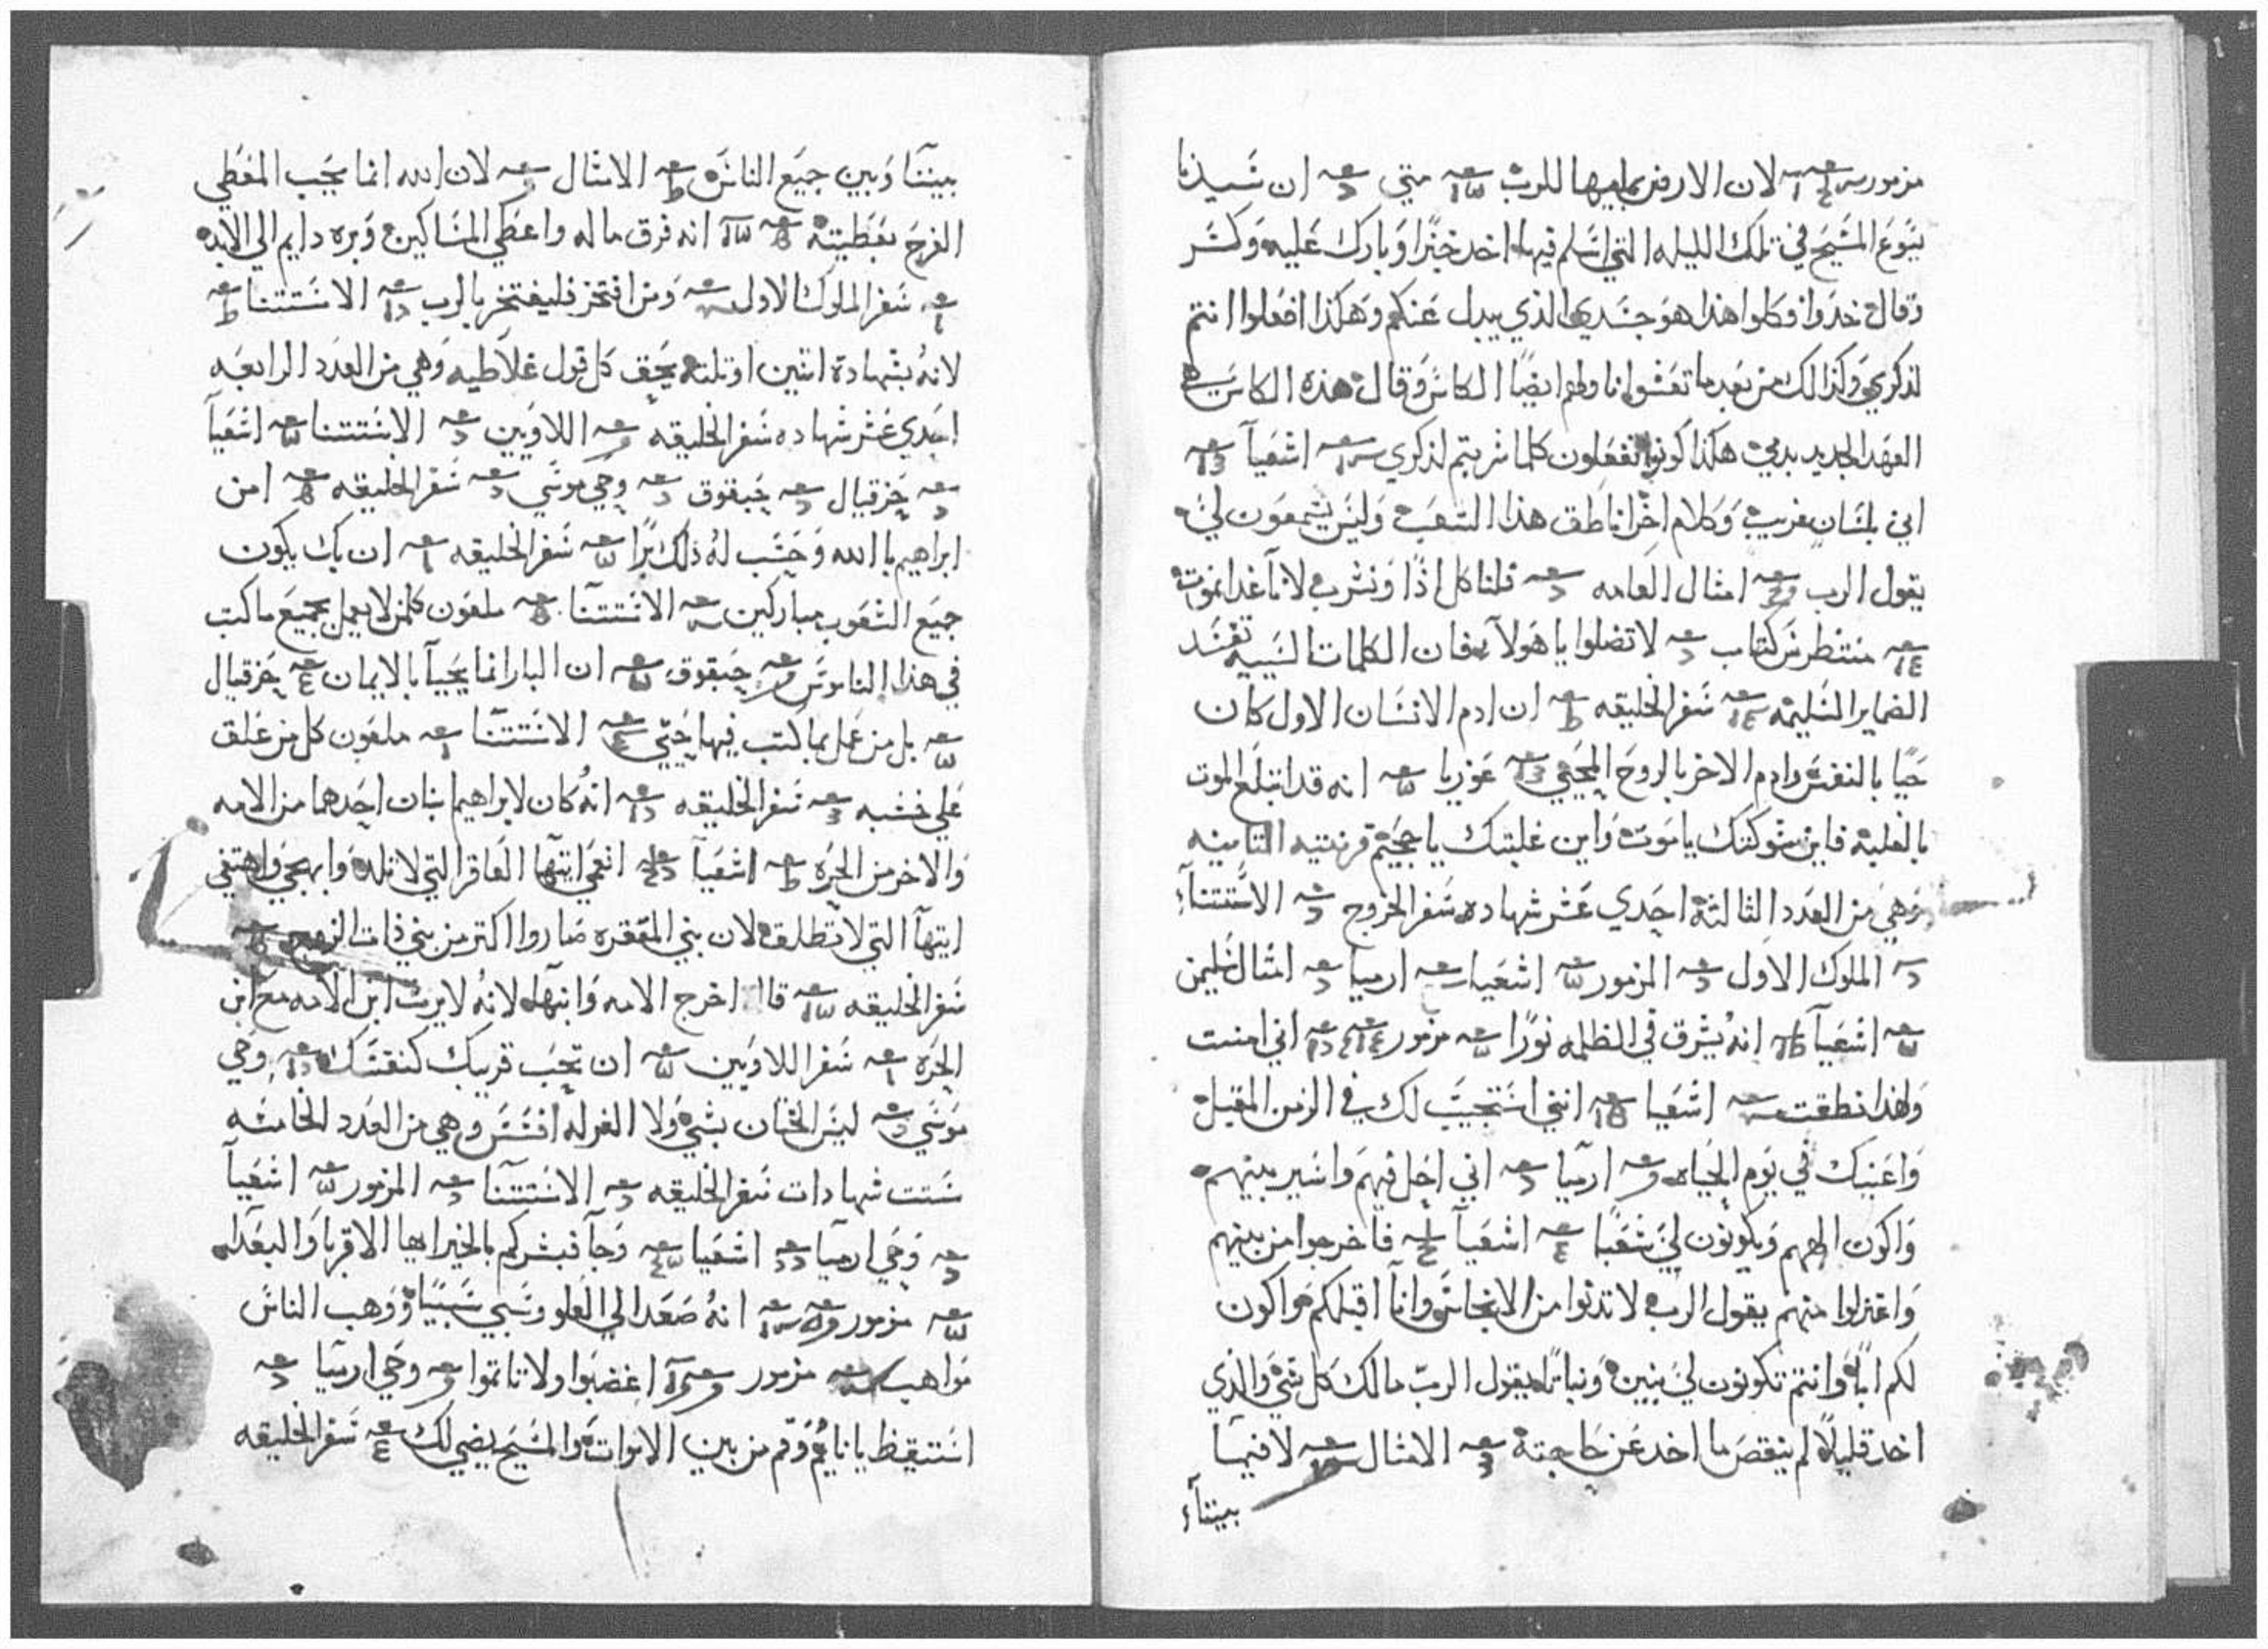 مزمور لان الارض بما فيها للرب متي ان سيدنا
يسوع المسيح في تلك الليله التي اسلم فيها اخد خبزًا وبارك عليه وكسر
وقال خدوا وكلوا هذا هو جسدي الذي يبدل عنكم وهكذا افعلوا انتم
لذكري وكذالك من بعد ما تعشوا ناولهم ايضًا الكاس وقال هذه الكاس هي
العهد الجديد بدمي هكذا كونوا تفعلون كلما شربتم لذكري اشعيآ
اني بلسان غريب وكلام اخر اناطق هذا الشعب وليس يسمعون لي
يقول الرب امثال العامه فلناكل اذًا ونشرب لانآ غدا نموت
منتطرس كتاب لا تضلوا يا هولآ فان الكلمات السييه تفسد
الضماير السليمه سفر الخليقه ان ادم الانسان الاول كان
حيًا بالنفس وادم الاخر بالروح المحيي عوزيا انه قد ابتلع الموت
بالغلبة فاين شوكتك يا موت واين غلبتك يا جحيم قرنتيه التانيه
وهي من العدد الثالثة احدي عشر شهاده سفر الخروج الاستتنآء
الملوك الاول المزمور اشعيا ارميا امثال سليمن
اشعيآ انه يشرق في الظلمه نورًا مزمور اني امنت
ولهذا نطقت اشعيا انني استجيب لك في الزمن المقبل
واعينك في يوم الحياه ارميا اني احل فيهم واسير بينهم
واكون الههم ويكونون لي شعبًا اشعيآ فاخرجوا من بينهم
واعتزلوا منهم يقول الرب لا تدنوا من الانجاس وانآ اقبلكم واكون
لكم ابًا وانتم تكونون لي بنين وبناتًا يقول الرب مالك كل شي والذي
اخد قليلاً لم ينقص ما اخد عن حاجتة الامثال لا فيما
بيننآء
بيننا وبين جميع الناس الامثال لان الله انما يحب المعطي
الفرح بعطيتة انه فرق ماله واعطي المساكين وبره دايم الي الابد
سفر الملوك الاول ومن افتخر فليفتخر بالرب الاستتنا
لانه بشهادة اتنين او تلته يحق كل قول غلاطيه وهي من العدد الرابعه
احدي عشر شهاده سفر الخليقه اللاويين الاستتنا اشعيآ
حزقيال حبقوق وحي موسي سفر الخليقه امن
ابراهيم باالله وحسب له ذلك برًا سفر الخليقه ان بك يكون
جميع الشعوب مباركين الاستتنا ملعون كلمن لا يعمل بجميع ما كتب
في هذا الناموس حبقوق ان البار انما يحيآ بالايمان حزقيال
بل من عمل بما كتب فيها حيي الاستتنا ملعون كل من علق
علي خشبه سفر الخليقه انه كان لابراهيم ابنان احدهما من الامه
والاخر من الحره اشعيآ انعمي ايتها العاقر التي لا تلد وابهجي واهتفي
ايتهآ التي لا تطلق لان بني المقفره صاروا اكتر من بني ذات الزوج
سفر الخليقه قال اخرج الامه وابنها لانه لا يرث ابن الامه مع ابن
الحره سفر اللاويين ان تحب قريبك كنفسك وحي
موسي ليس الختان بشي ولا الغرله افسس وهي من العدد الخامسه
ستت شهادات سفر الخليقه الاستتنا المزمور اشعيآ
وحي ارميا اشعيا وجآ فبشركم بالخير ايها الاقربا والبعدا
مزمور انه صعد الي العلو وسبي سبيًا ووهب الناس
مواهب مزمور اغضبوا ولا تاتموا وحي ارميا
استيقظ يا نايم وقم من بين الاموات والمسيح يضي لك سفر الخليقه